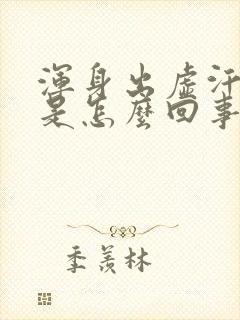 渾身出虛汗
是怎麼回事
季羨林